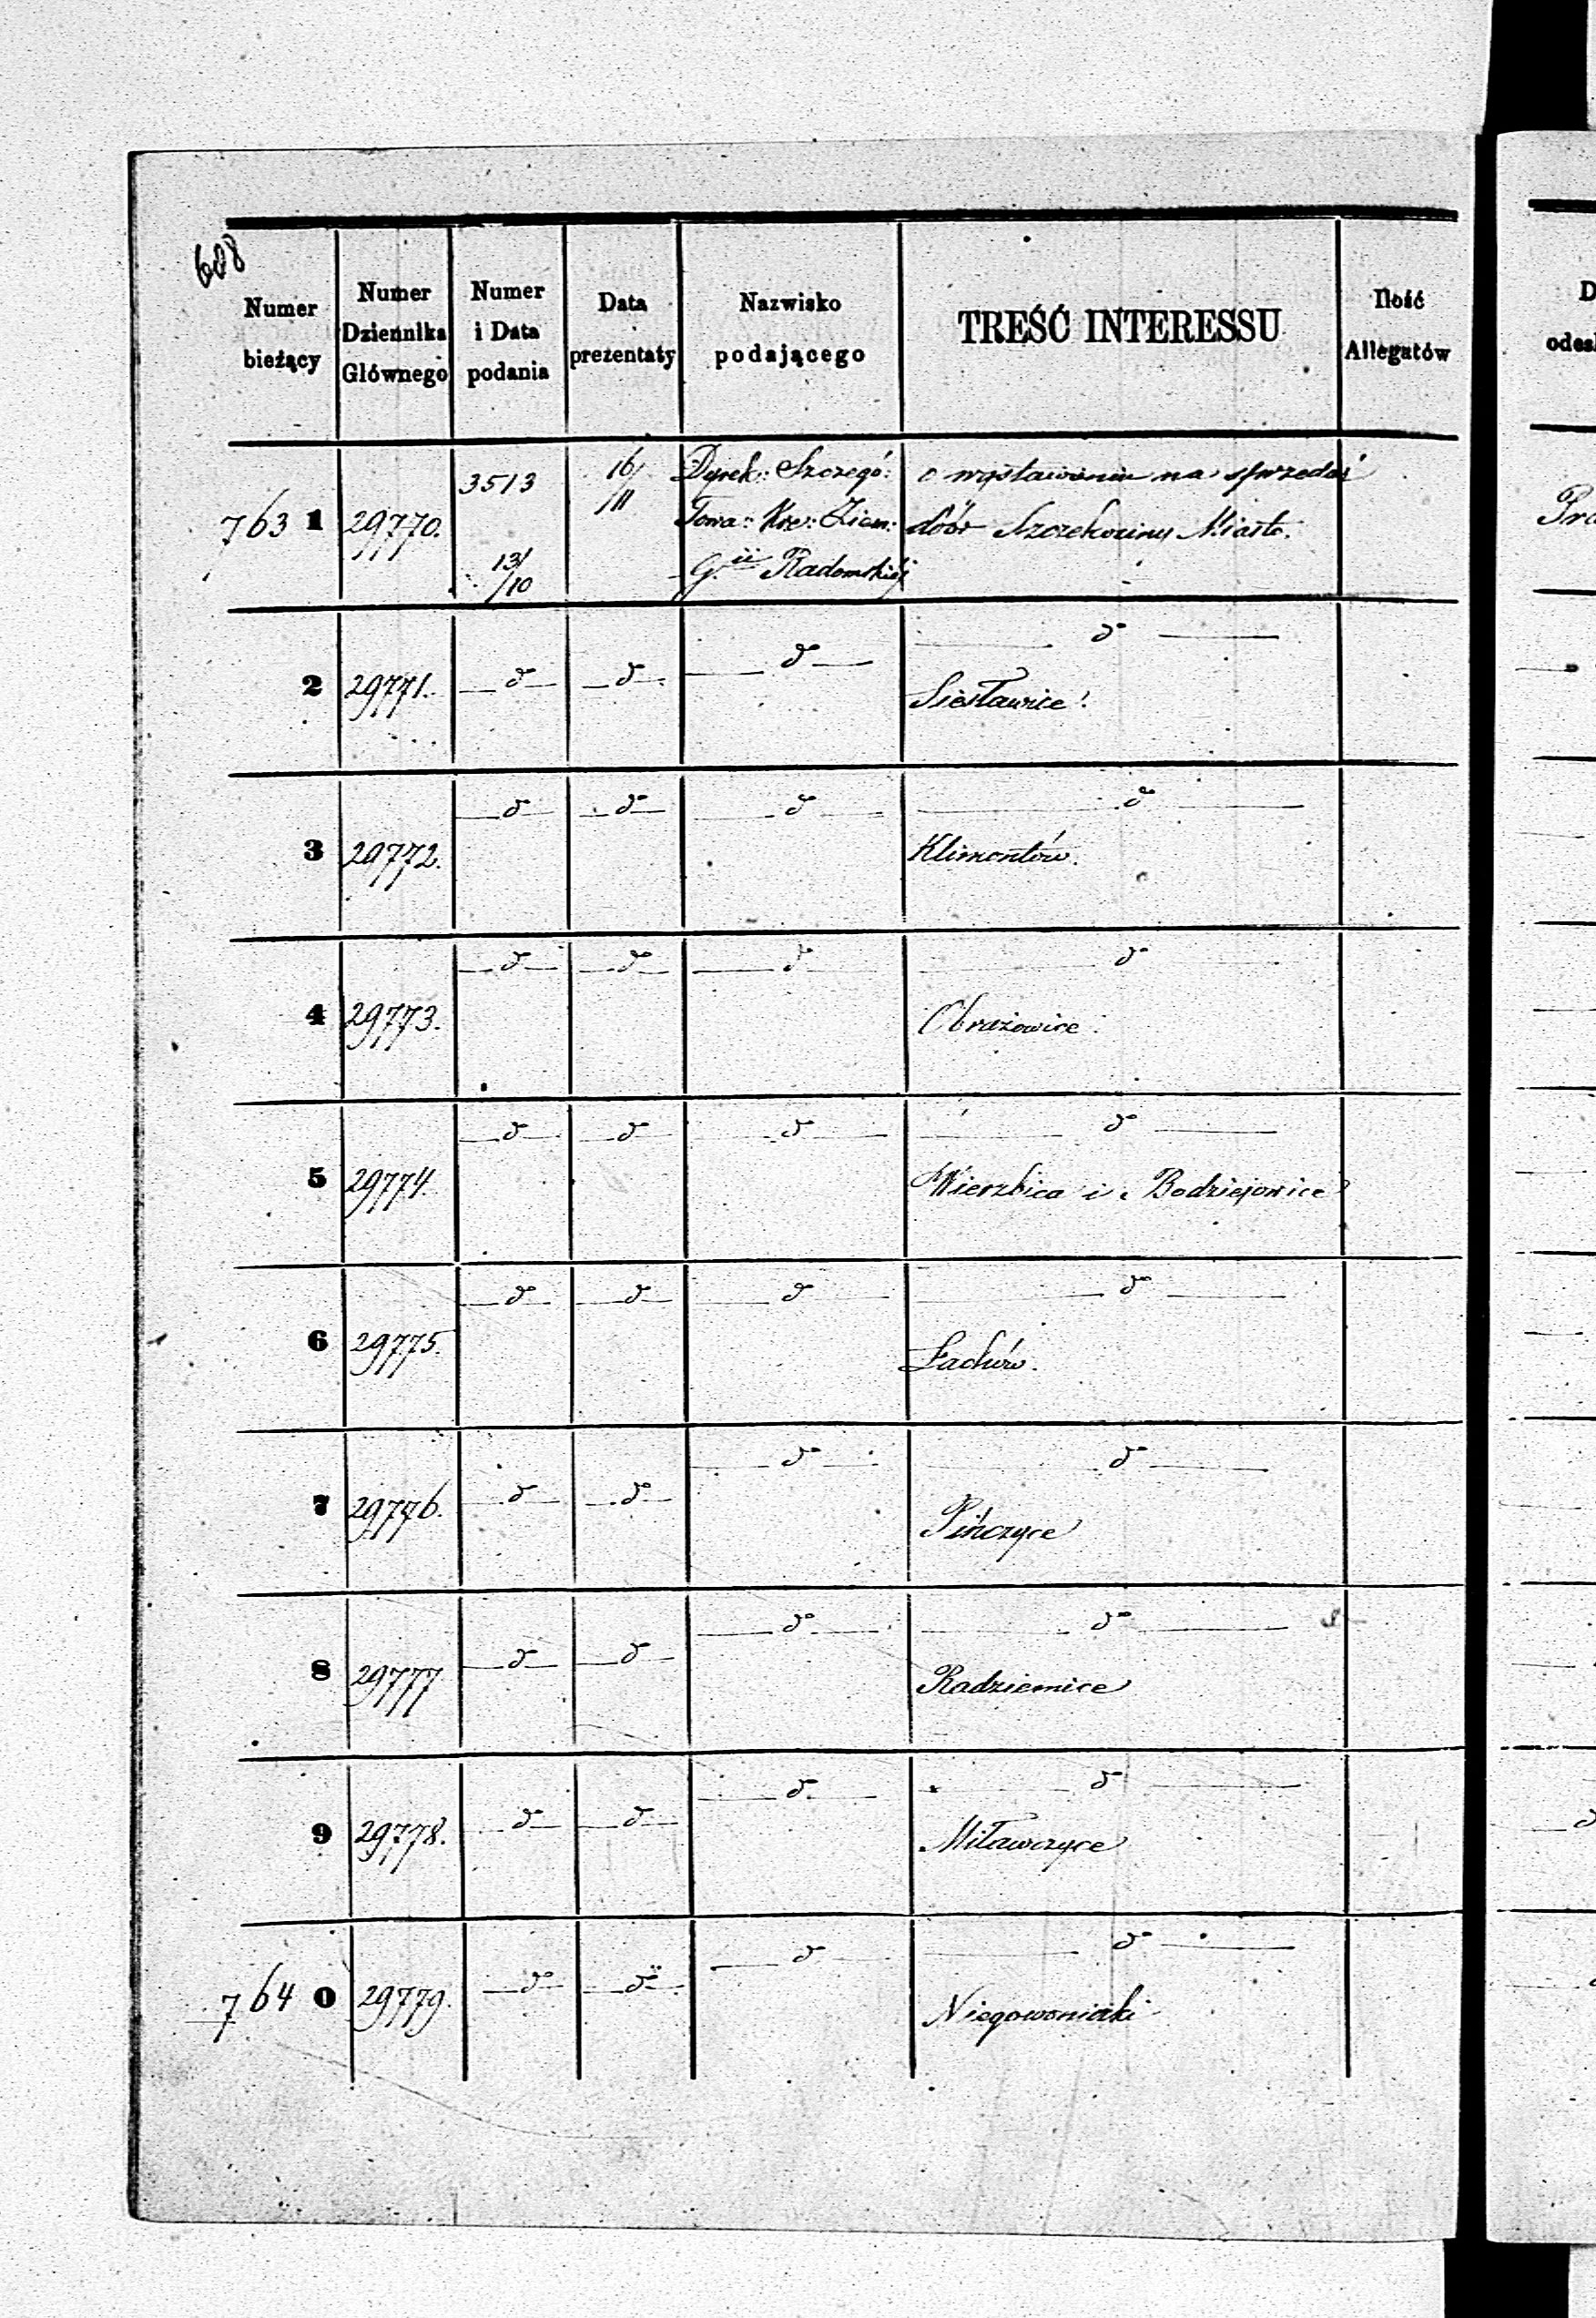 608
Numer bieżący | Numer Dziennika Głównego | Numer i Data podania | Data prezentaty | Nazwisko podającego | TREŚĆ INTERESSU | Ilość Allegatów
763 1 | 29770. | 3513 13/10 | 16/11 | Dyrek: Szczegó: Towa: Kre: Ziem: G.ii Radomskiéj | o wystawieniu na sprzedaż dóbr Szczekociny Miasto.
2 | 29771. | — do — | — do — | — do — | — do — Siesławice.
3 | 29772. | — do — | — do — | — do — | — do — Klimontów.
4 | 29773. | — do — | — do — | — do — | — do — Obrażowice.
5 | 29774. | — do — | — do — | — do — | — do — Wierzbica i Bodziejowice
6 | 29775. | — do — | — do — | — do — | — do — Łachów.
7 | 29776. | — do — | — do — | — do — | — do — Pińczyce
8 | 29777 | — do — | — do — | — do — | — do — Radziemice
9 | 29778. | — do — | — do — | — do — | — do — Miławczyce
764 0 | 29779. | — do — | — do — | — do — | — do — Niegowoniaki